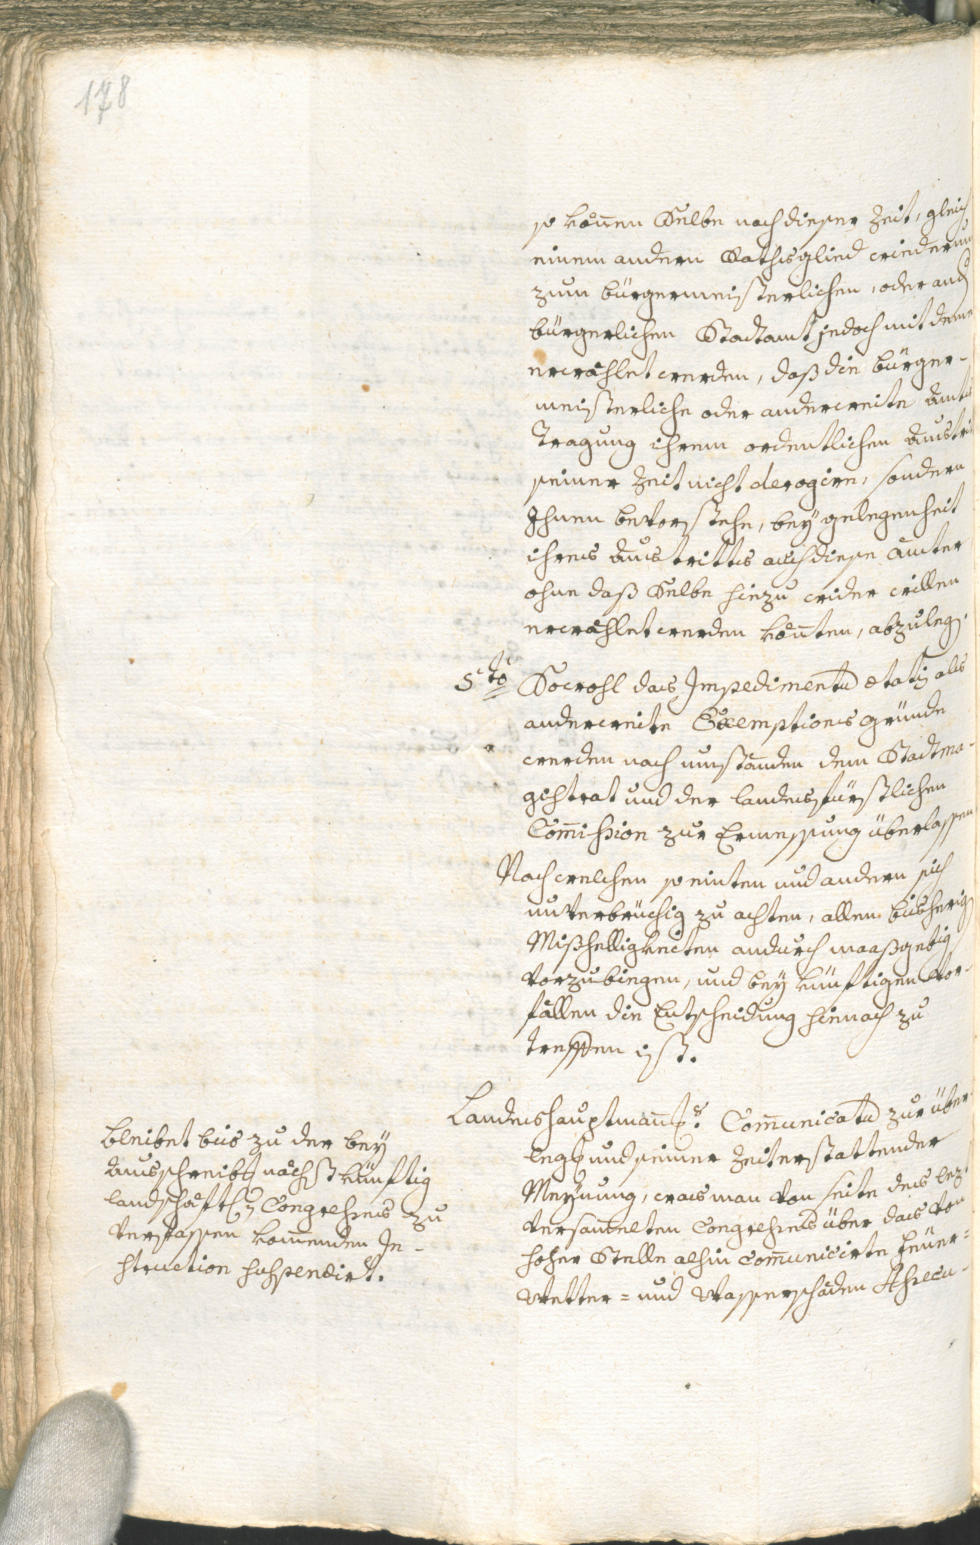 178
so können Selbe nach dieser Zeit, gleich
einem andern Rathsglied wiederum
zum bürgermeisterlichen, oder auch
bürgerlichen Stadtamt jedoch mit deme
erwählet werden, daß die bürger-
meisterliche oder anderweite Amts
Tragung ihrem ordentlichen Austrit
seiner Zeit nicht derogire, sondern
Ihnen bevorstehe, bey gelegenheit
ihres Austrittes auch diese ämter
ohne daß Selbe hiezu wider willen
erwählet werden könnten, abzulegen.
5to Sowohl das Impedimentum etatis als
anderweite Exemptions gründe
werden nach umständen dem Stadtma-
gistrat und der landesfürstlichen
Commission zur Ermessung überlassen
Nach welchen so einten und andern sich
unverbrüchig zu achten, allen bisherig
Mißhelligkeiten andurch maaßgebig
vorzubiegen, und bey künftigen vor-
fällen die Entscheidung hienach zu
treffen ist.
Landeshauptmannschaftl. Communicatum zur über-
legung und seiner Zeit erstattender
Meynung, was man von seite des lez
versammelten Congresses über das von
hoher Stelle alhin communicirte feüer-
Wetter- und Wasserschäden Assecu-
bleibet bis zu der bey
Ausschreibung nächst künftig
landschäftlichen Congresses zu
verfassen kommenden In-
struction suspendirt.